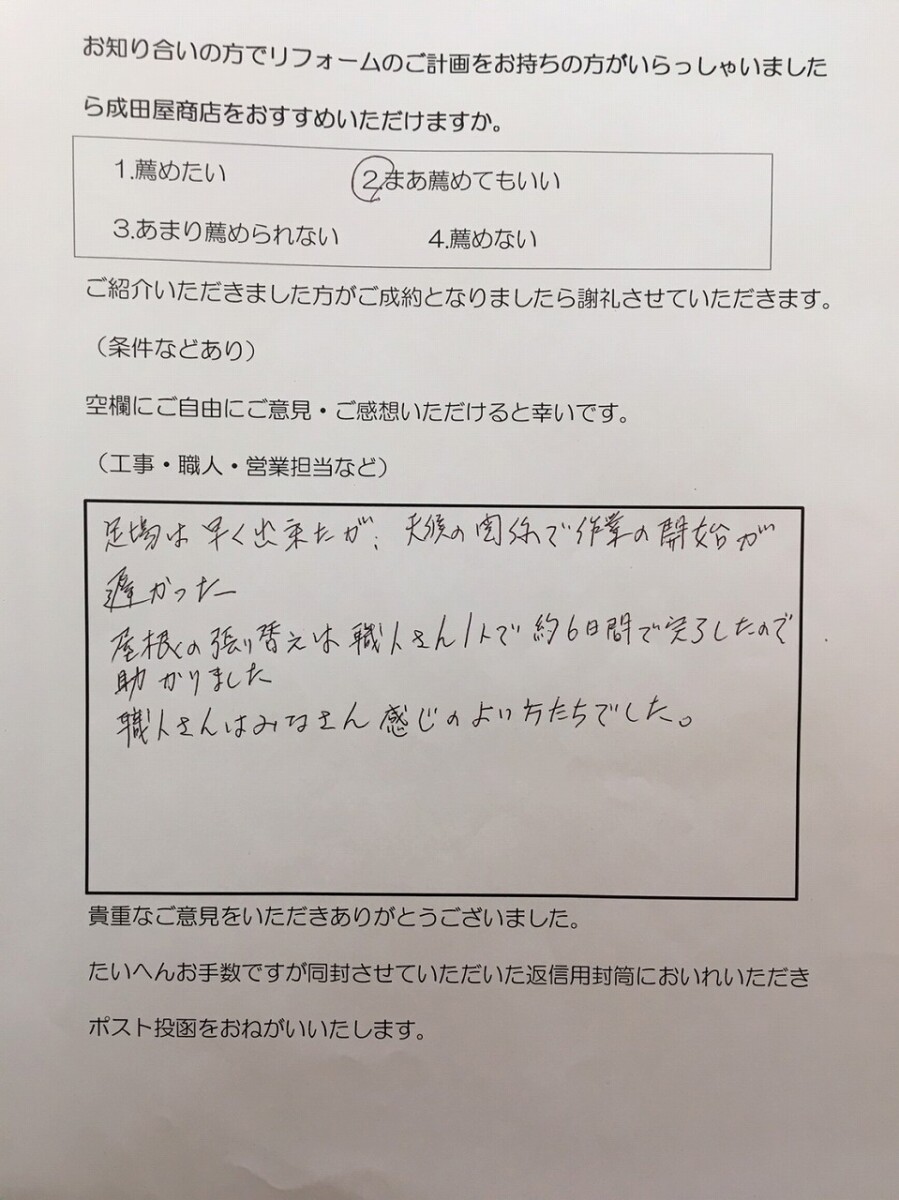 お知り合いの方でリフォームのご計画をお持ちの方がいらっしゃいました
ら成田屋商店をおすすめいただけますか。
1.薦めたい
2.まあ薦めてもいい
3.あまり薦められない
4.薦めない
ご紹介いただきました方がご成約となりましたら謝礼させていただきます。
（条件などあり）
空欄にご自由にご意見・ご感想いただけると幸いです。
（工事・職人・営業担当など）
足場は早く出来たが、天候の関係で作業の開始が
遅かった
屋根の張り替えは職人さん1人で約6日間で完了したので
助かりました
職人さんはみなさん感じのよい方たちでした。
貴重なご意見をいただきありがとうございました。
たいへんお手数ですが同封させていただいた返信用封筒においれいただき
ポスト投函をおねがいいたします。